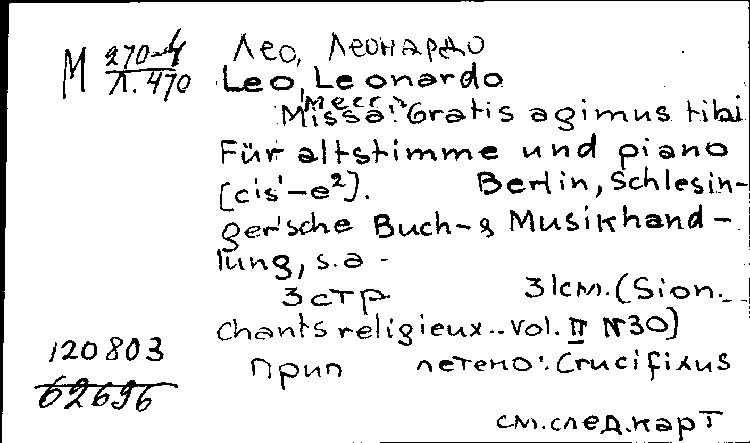 М 270-4 Лео, Леонардо
Л. 470 Leo, Leonardo
Missa: Gratis agimus tibi
Für altstimme und piano
[cis'-e²]. Berlin, Schlesin-
ger'sche Buch- & Musikhand-
lung, s.a -
3 стр 31см. (Sion.
Chants religieux.. vol. II N30)
120803
прип летено: Crucifixus
62696
см. след. карт